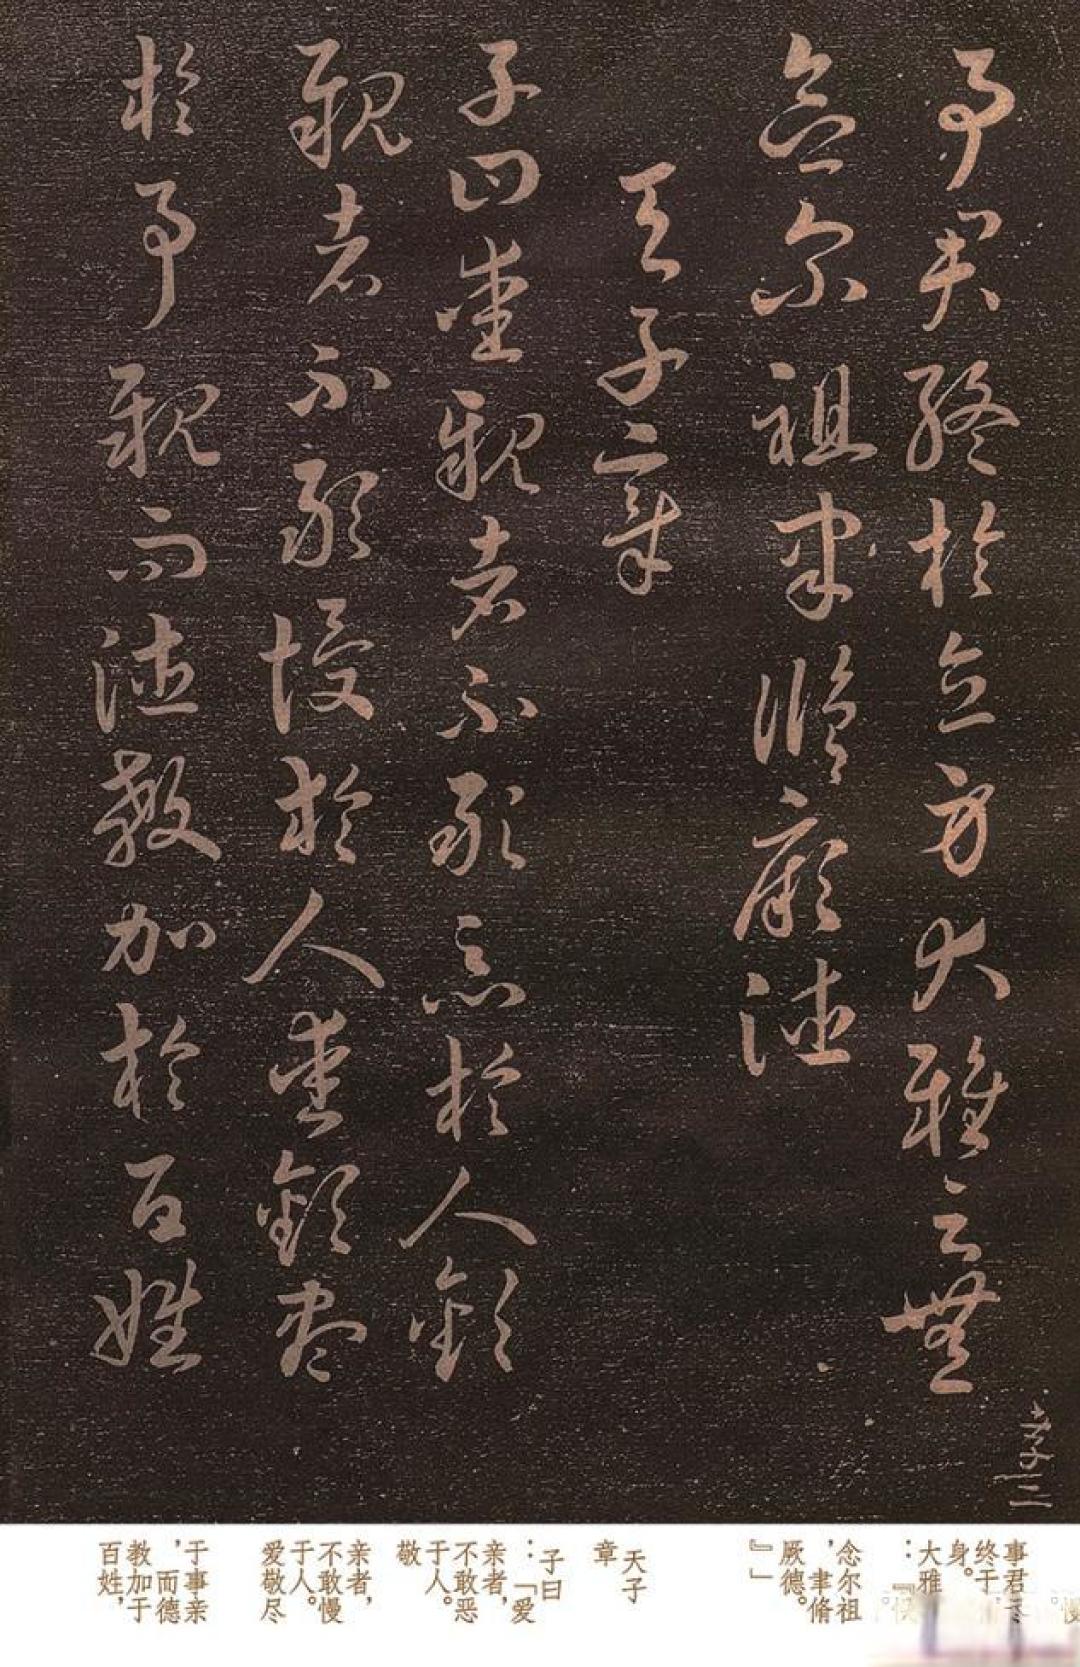 事君終於立身大雅云無
念尔祖聿脩厥德
天子章
子曰愛親者不敢惡於人敬
親者不敢慢於人愛敬尽
於事親而德教加於百姓
事君，
终于
身。
大雅
：『
念尔祖
，聿脩
厥德。
』」
天子
章
子曰
：「爱
亲者，
不敢恶
于人。
敬
亲者，
不敢慢
于人。
爱敬尽
于事亲
，而德
教加于
百姓，